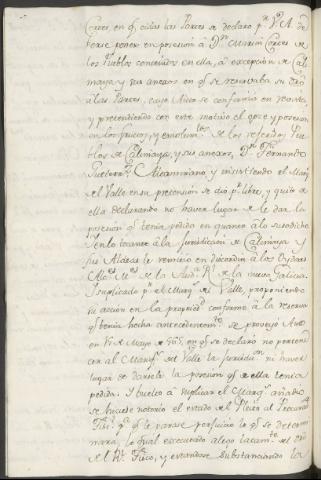 Cortes, en q.e oídas las Partes se declaro p.r V. A. de
berse poner en posesion á D.n Martin Cortes de
los Pueblos contenidos en ella, á excepcion de Cali
maya y sus anexos en q.e se reservaba su dro
á las Partes, cuyo Auto se confirmó en revista,
y pretendiendo con este motivo el goze y posesion
en los frutos, y emolum.tos de los referidos Pue
blos de Calimaya, y sus anexos, D.n Fernando
Altamirano, y insistiendo el Marq.s
del Valle en su pretension se dio p.r libre, y quito de
ella declarando no haver lugar de le dar la
posesion q.e tenia pedida en quanto á lo susodicho
y en lo tocante á la Jurisdiccion de Calimaya y
sus Aldeas se remitio en discordia á los Oydores
de la Aud.a R.l de la nueva Galicia.
Y suplicado p.r el Marq.s del Valle, proponiendo
su accion en la propried.d conforme á la reserva
q.e tenia hecha antecedentem.te se proveyó Auto
en de Mayo de en q.e se declaro no pertene
cer al Marq.s del Valle la Jurisdic.on ni haver
lugar de darsele la posesion q.e de ella tenia
pedida. Y buelto á suplicar el Marq.s añadio
se hiciese notorio el estado del Pleito al
Fis.l p.a q.e le parase perjuicio lo q.e se deter
minara, lo qual executado alego del dro
de el R.l Fisco, y estandose substanciando la